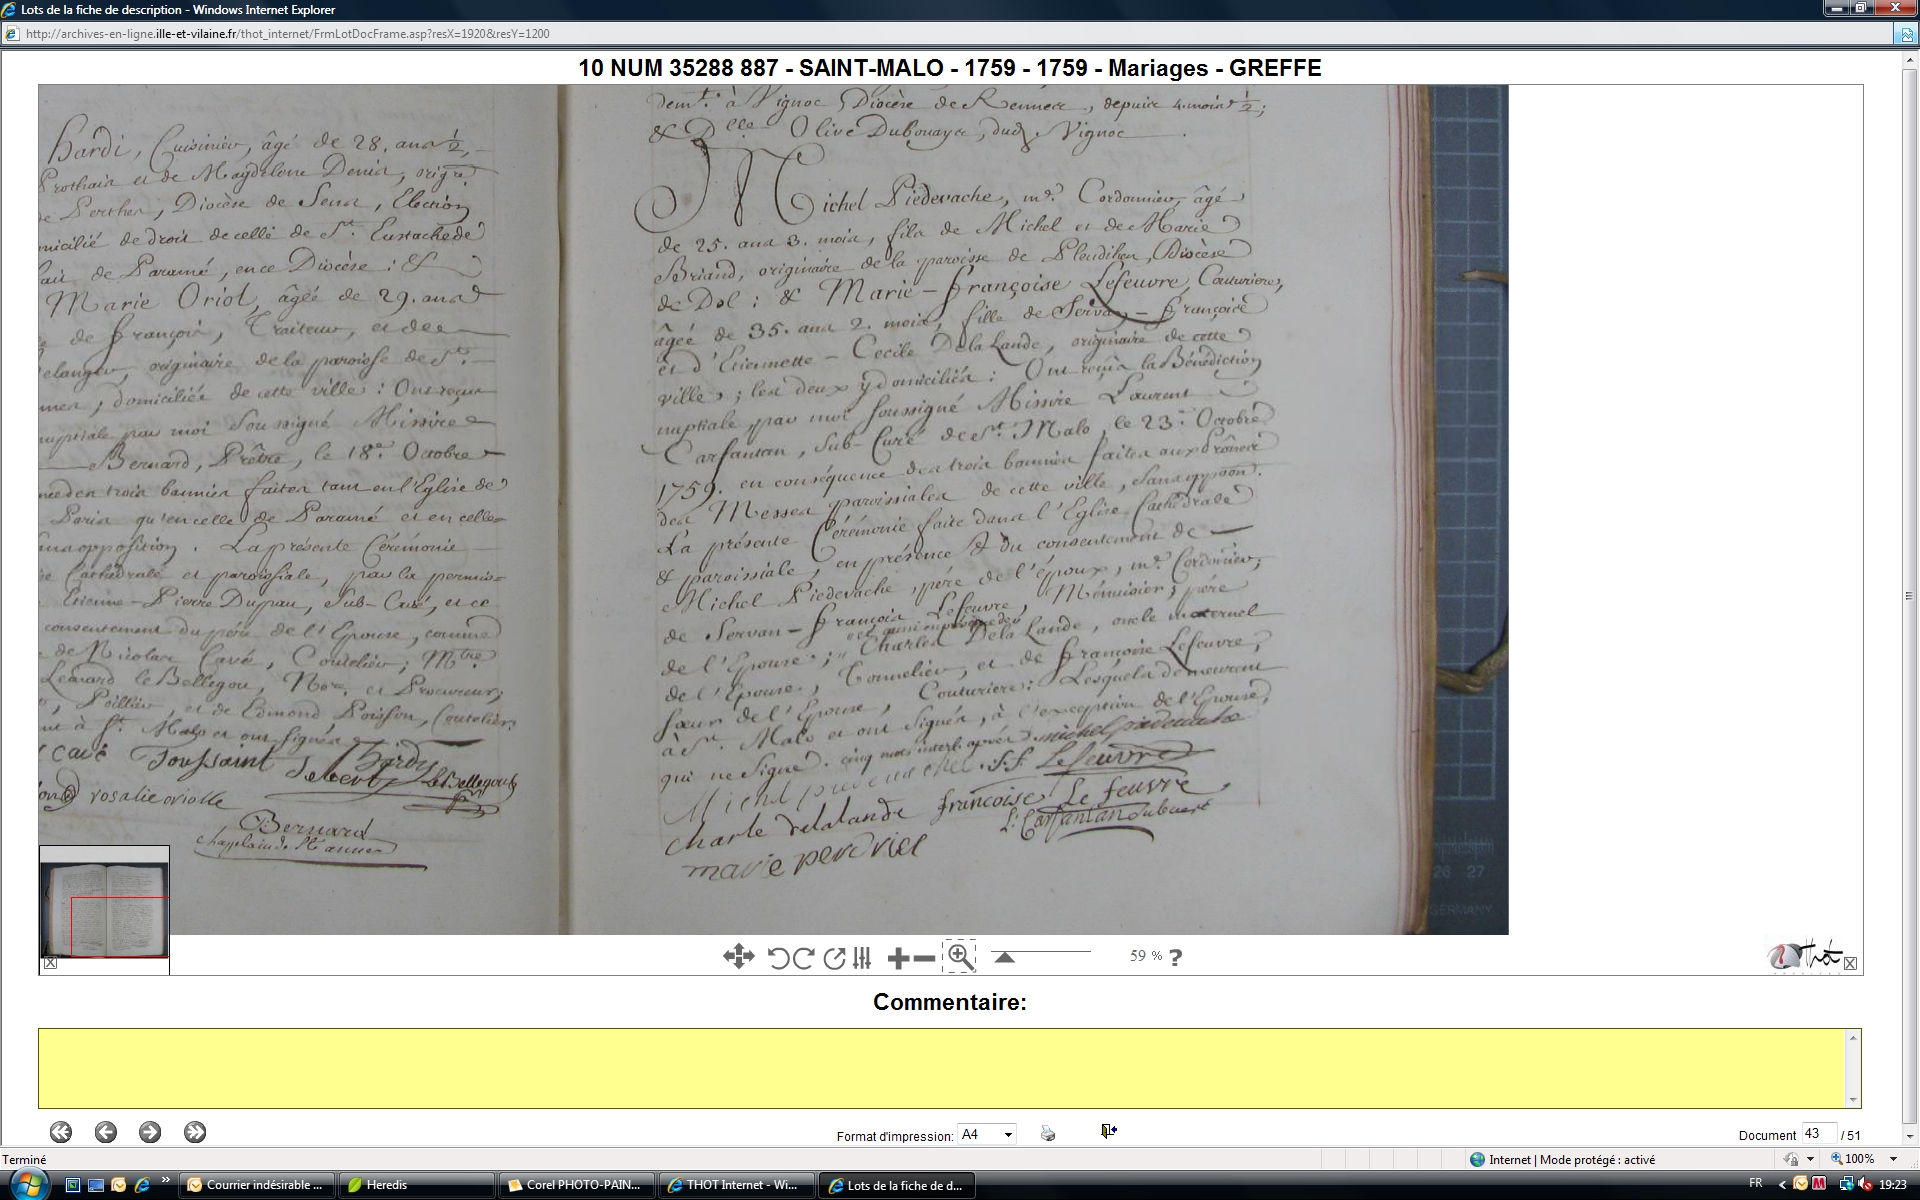 Lots de la fiche de description - Windows Internet Explorer
http://archives-en-ligne.ille-et-vilaine.fr/thot_internet/FrmLotDocFrame.asp?resX=1920&resY=1200
10 NUM 35288 887 - SAINT-MALO - 1759 - 1759 - Mariages - GREFFE
hardi, Cuisinier, âgé de 28. ans ½,
et de Magdelene Denis, origre.
Diocèse de Sens, Election
de droit de celle de St. Eustache de
de Paramé, en ce Diocèse : &
Marie Oriot, âgée de 29. ans
de François, Traiteur, et de
originaire de la paroisse de St.
domiciliée de cette ville : Ont reçu
nuptiale par moi soussigné Missire
Bernard, Prêtre, le 18e. Octobre
trois bannies faites tant en l'Eglise de
Paris qu'en celle de Paramé et en celle
opposition. La présente Cérémonie
Cathédrale et paroissiale, par la permis=
Etienne-Pierre Dupau, Sub-Curé, et ce
consentement du père de l'Epouse, comme
de Nicolas Cavé, Coutelier; Mtre
Léonard le Bellegou, Nore. et Procureur;
et de Edmond Poisson, Coutelier,
à St. Malo et ont signés
cavé Toussaint hardy
LeBellegou
rosalie oriolle
Bernard
demt. à Vignoc, Diocèse de Rennes, depuis 4. mois ½;
& Delle Olive Dubouays, dud. Vignoc.
Michel Piedevache, me. Cordonnier, âgé
de 25. ans 3. mois, fils de Michel et de Marie
Briand, originaire de la paroisse de Pleudihen, Diocèse
de Dol : & Marie-Françoise Lefeuvre, Couturiere,
âgée de 35. ans 2. mois, fille de Servan-François
et d'Etiennette-Cecile Dela Lande, originaire de cette
ville; les deux y domiciliés : Ont reçu la Bénédiction
nuptiale par moi soussigné Missire Laurent
Carfantan, Sub-Curé de St. Malo, le 23e. Octobre
1759. en conséquence des trois bannies faites aux Prônes
des Messes paroissiales de cette ville, sans opposon.
La présente Cérémonie faite dans l'Eglise Cathédrale
& paroissiale, en présence & du consentement de
Michel Piedevache, père de l'époux, me. Cordonnier;
de Servan-François Lefeuvre, Menuisier, père
de l'Epouse; " et aussi en présence de " Charles Dela Lande, oncle maternel
de l'Epouse, Tonnelier, et de Françoise Lefeuvre,
sœur de l'Epouse, Couturiere : Lesquels demeurent
à St. Malo et ont signés, à l'exception de l'Epouse,
qui ne signe. cinq mots interl. aprvés michel piedevache
Michel piedevache. S.f. Lefeuvre
charle delalande francoise Le feuvre
L: Carfantan subcuré
marie perdriel
26 27
GERMANY
59 % ?
Thot
Commentaire:
Format d'impression: A4
Document 43 / 51
Terminé
Internet | Mode protégé : activé
100%
Courrier indésirable ...
Heredis
Corel PHOTO-PAIN...
THOT Internet - Wi...
Lots de la fiche de d...
FR
19:23